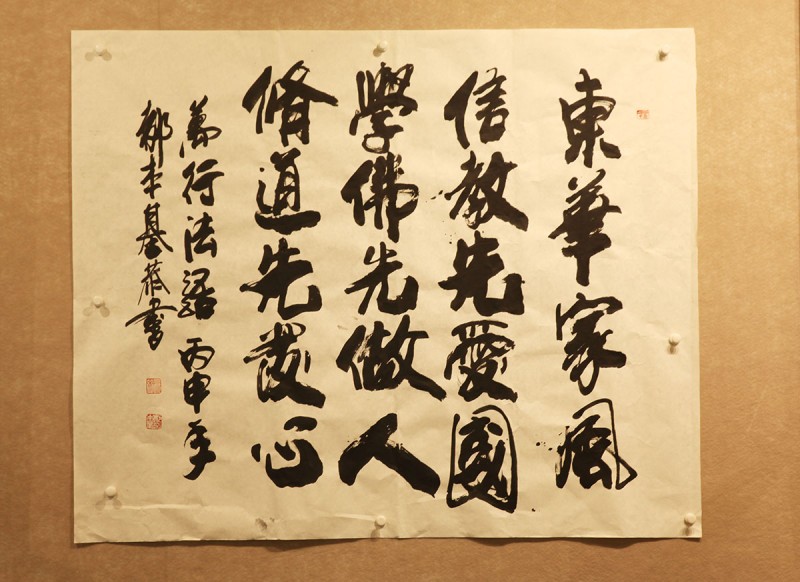 東華家風
信教先愛國
學佛先做人
脩道先發心
萬行法語 丙申年
郝本基敬書